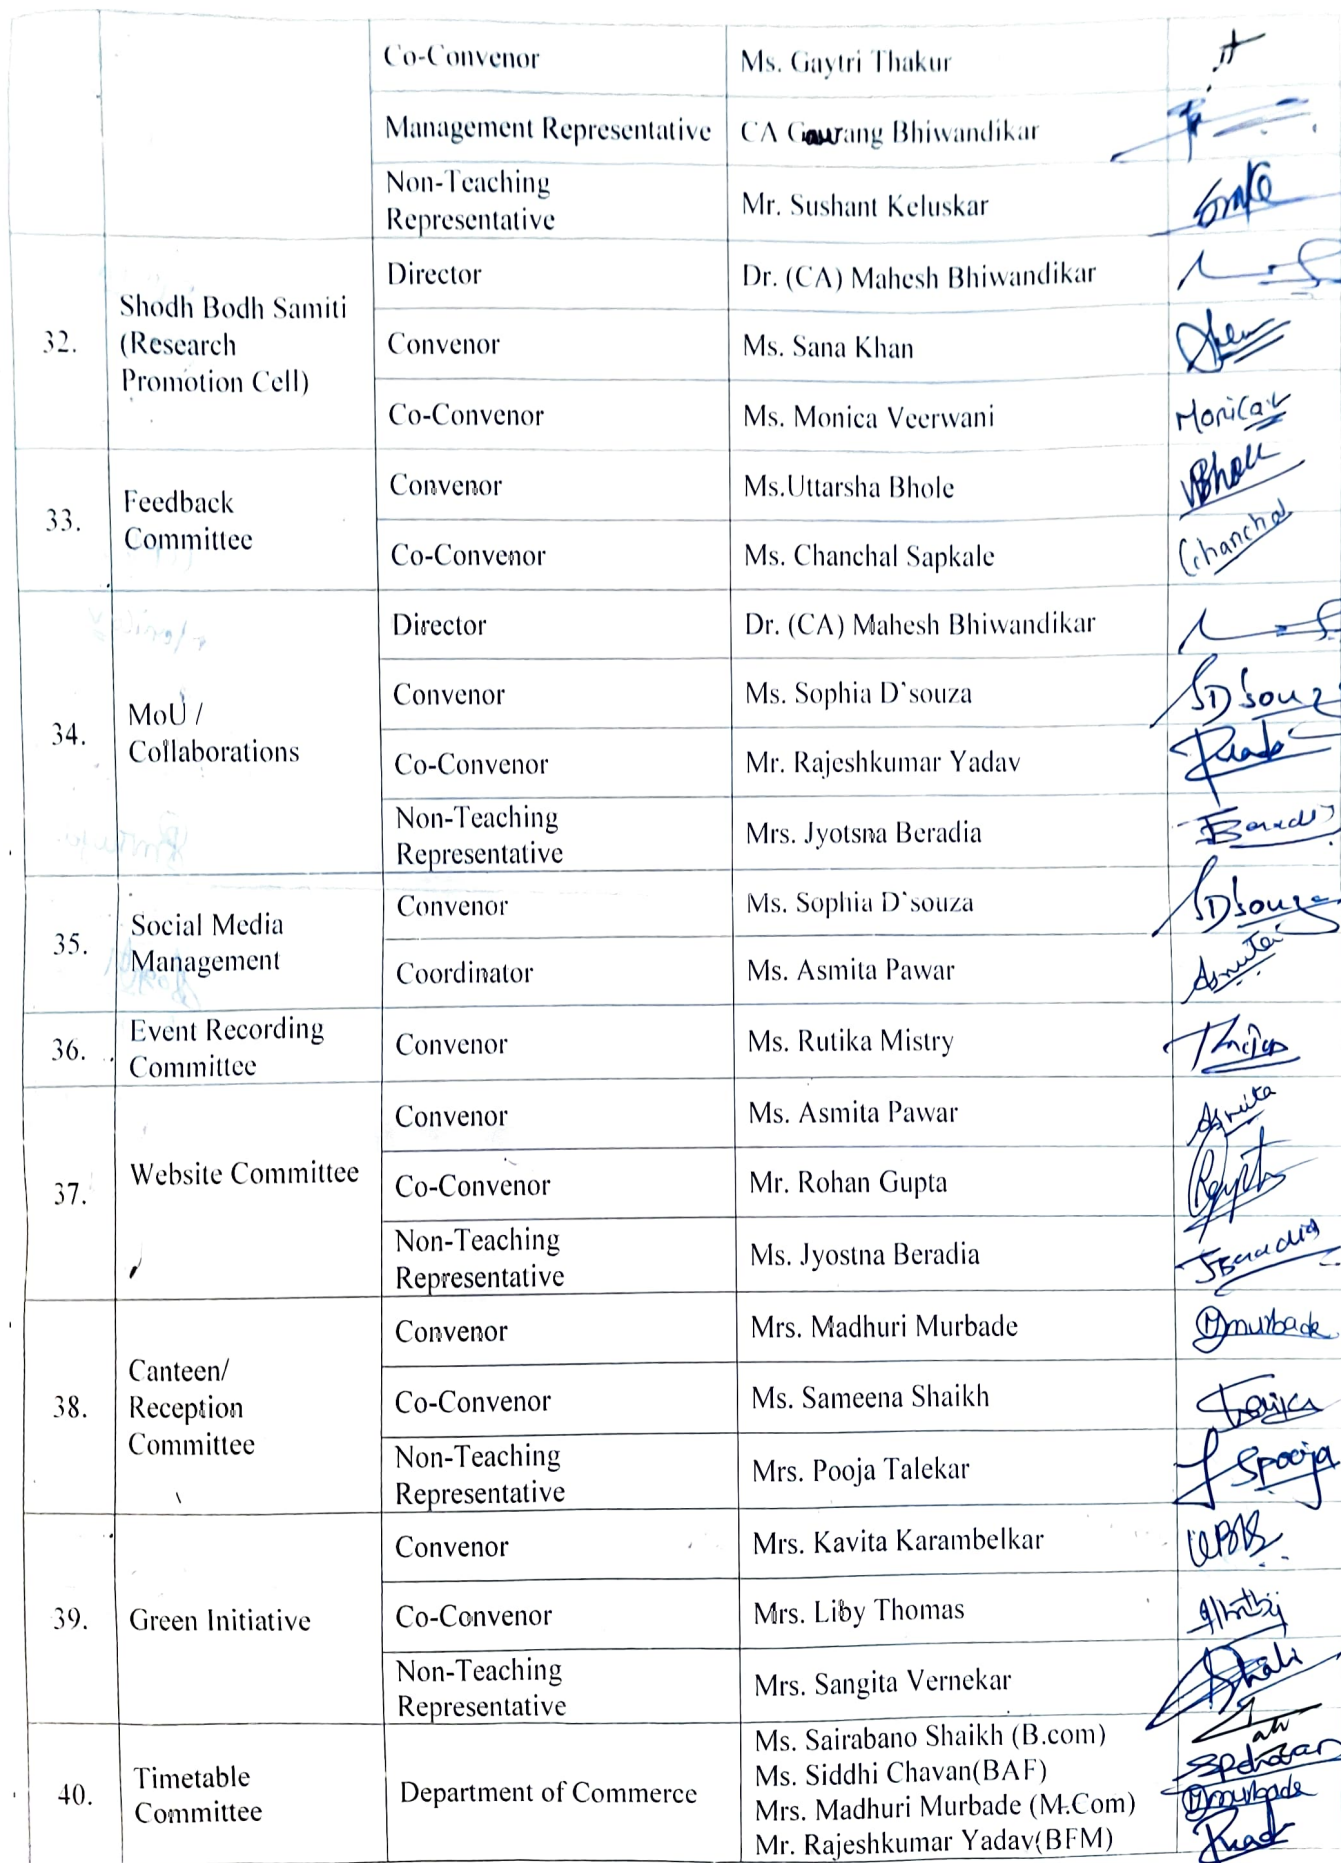 Co-Convenor Ms. Gaytri Thakur
Management Representative CA Gaurang Bhiwandikar
Non-Teaching
Representative Mr. Sushant Keluskar
32. Shodh Bodh Samiti
(Research
Promotion Cell)
Director Dr. (CA) Mahesh Bhiwandikar
Convenor Ms. Sana Khan
Co-Convenor Ms. Monica Veerwani Monica.v
33. Feedback
Committee
Convenor Ms.Uttarsha Bhole VBhole
Co-Convenor Ms. Chanchal Sapkale Chanchal
34. MoU /
Collaborations
Director Dr. (CA) Mahesh Bhiwandikar
Convenor Ms. Sophia D`souza SDsouza
Co-Convenor Mr. Rajeshkumar Yadav
Non-Teaching
Representative Mrs. Jyotsna Beradia
35. Social Media
Management
Convenor Ms. Sophia D`souza SDsouza
Coordinator Ms. Asmita Pawar Asmita
36. Event Recording
Committee
Convenor Ms. Rutika Mistry
37. Website Committee
Convenor Ms. Asmita Pawar Asmita
Co-Convenor Mr. Rohan Gupta
Non-Teaching
Representative Ms. Jyostna Beradia JBeradia
38. Canteen/
Reception
Committee
Convenor Mrs. Madhuri Murbade Mmurbade
Co-Convenor Ms. Sameena Shaikh
Non-Teaching
Representative Mrs. Pooja Talekar Spooja
39. Green Initiative
Convenor Mrs. Kavita Karambelkar
Co-Convenor Mrs. Liby Thomas
Non-Teaching
Representative Mrs. Sangita Vernekar
40. Timetable
Committee
Department of Commerce
Ms. Sairabano Shaikh (B.com)
Ms. Siddhi Chavan(BAF)
Mrs. Madhuri Murbade (M.Com) Mmurbade
Mr. Rajeshkumar Yadav(BFM)